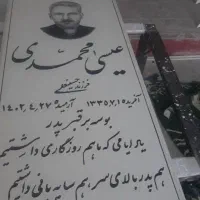 عیسی محمدی
فرزند حسینعلی
آفریده ۱۳۳۵٫۷٫۱۵ آرمیده ۱۴۰۲٫۴٫۲۷
بوسه بر قبر پدر
یاد ایامی که ما هم روزگاری داشتیم
هم پدر بالای سر هم سایه بانی داشتیم